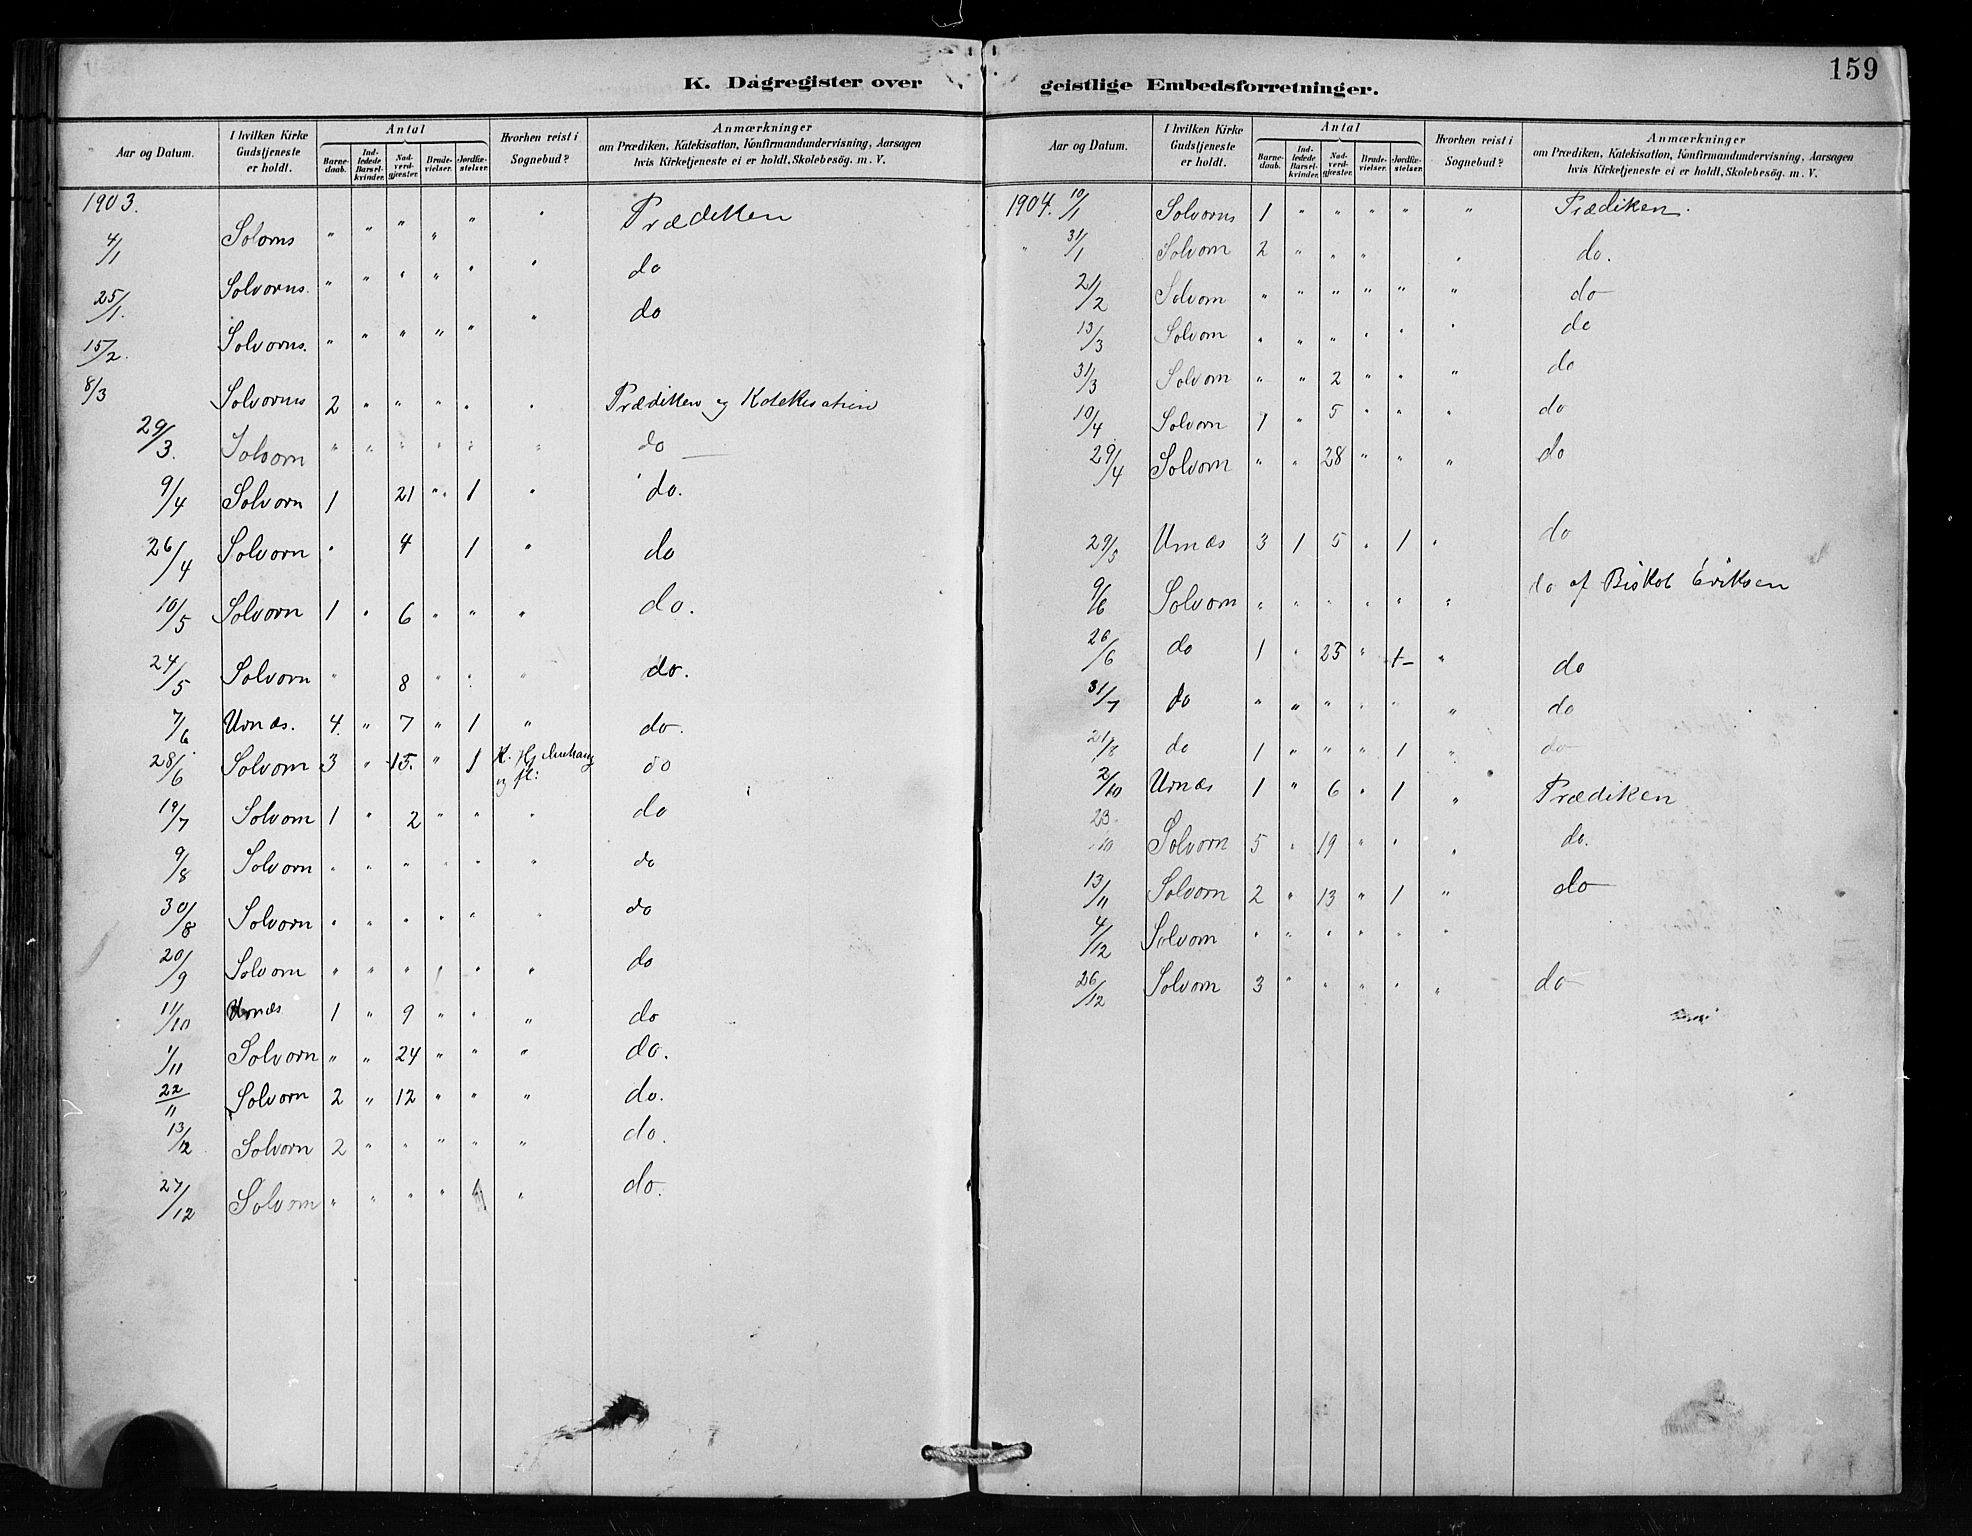 159
K. Dagregister over geistlige Embedsforretninger.
Aar og Datum. | I hvilken Kirke Gudstjeneste er holdt. | Antal | Barne-daab. | Ind-ledede Barsel-kvinder. | Nad-verd-gjæster. | Brude-vielser. | Jordfæ-stelser. | Hvorhen reist i Sognebud? | Anmærkninger om Prædiken, Katekisation, Konfirmandundervisning, Aarsagen hvis Kirketjeneste ei er holdt, Skolebesøg. m. V.
1903.
4/1 Soloms " " " " " " Prædiken
25/1. Solvorns. " " " " " " do
15/2. Solvorns. " " " " " " do
8/3 Solvorns 2 " " " " " Prædiken og Katekisation
29/3. Solvorn " " " " " " do
9/4 Solvorn 1 21 " 1 " do.
26/4 Solvorn " 4 1 " do
10/5 Solvorn 1 " 6 " " " do.
24/5 Solvorn " 8 " " " do.
7/6 Urnæs. 4. " 7 " 1 " do.
28/6 Solvorn 3 " 15. " 1 K. og fl: do
19/7 Solvorn 1 " 2 " " " do
9/8 Solvorn " " " " " " do
30/8 Solvorn " " " " " " do
20/9 Solvorn " " " " " " do
11/10 Urnæs 1 " 9 " " " do
1/11 Solvorn " " 24 " " " do.
22/11 Solvorn 2 " 12 " " " do.
13/12 Solvorn 2 " " " " " do.
27/12 Solvorn " " " " 1 " do.
Aar og Datum. | I hvilken Kirke Gudstjeneste er holdt. | Antal | Barne-daab. | Ind-ledede Barsel-kvinder. | Nad-verd-gjæster. | Brude-vielser. | Jordfæ-stelser. | Hvorhen reist i Sognebud? | Anmærkninger om Prædiken, Katekisation, Konfirmandundervisning, Aarsagen hvis Kirketjeneste ei er holdt, Skolebesøg. m. V.
1904. 10/1 Solvorns 1 " " " " " Prædiken.
" 31/1 Solvorn 2 " " " " do.
21/2 Solvorn " " " " " " do
13/3 Solvorn " " " " " " do
31/3 Solvorn " " 2 " " " do
10/4 Solvorn 1 " 5 " " " do
29/4 Solvorn " " 28 " " " do
29/5 Urnæs 3 1 5 " 1 " do
9/6 Solvorn " " " " " " do af Biskob Eriksen
26/6 do 1 " 25 " 1 " do
31/7 do " " " " " " do
21/8 do 1 " " " 1 " do
2/10 Urnæs 1 " 6 " 1 " Prædiken
23/10 Solvorn 5 " 19 " " " do.
13/11 Solvorn 2 " 13 " 1 " do
4/12 Solvorn " " " " " "
26/12 Solvorn 3 " " " " " do